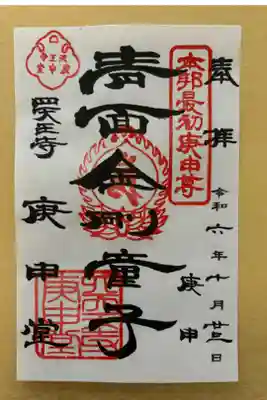 奉拝
令和六年十月廿三日
庚申
本邦最初庚申尊
青面金剛童子
四天王寺
庚申堂